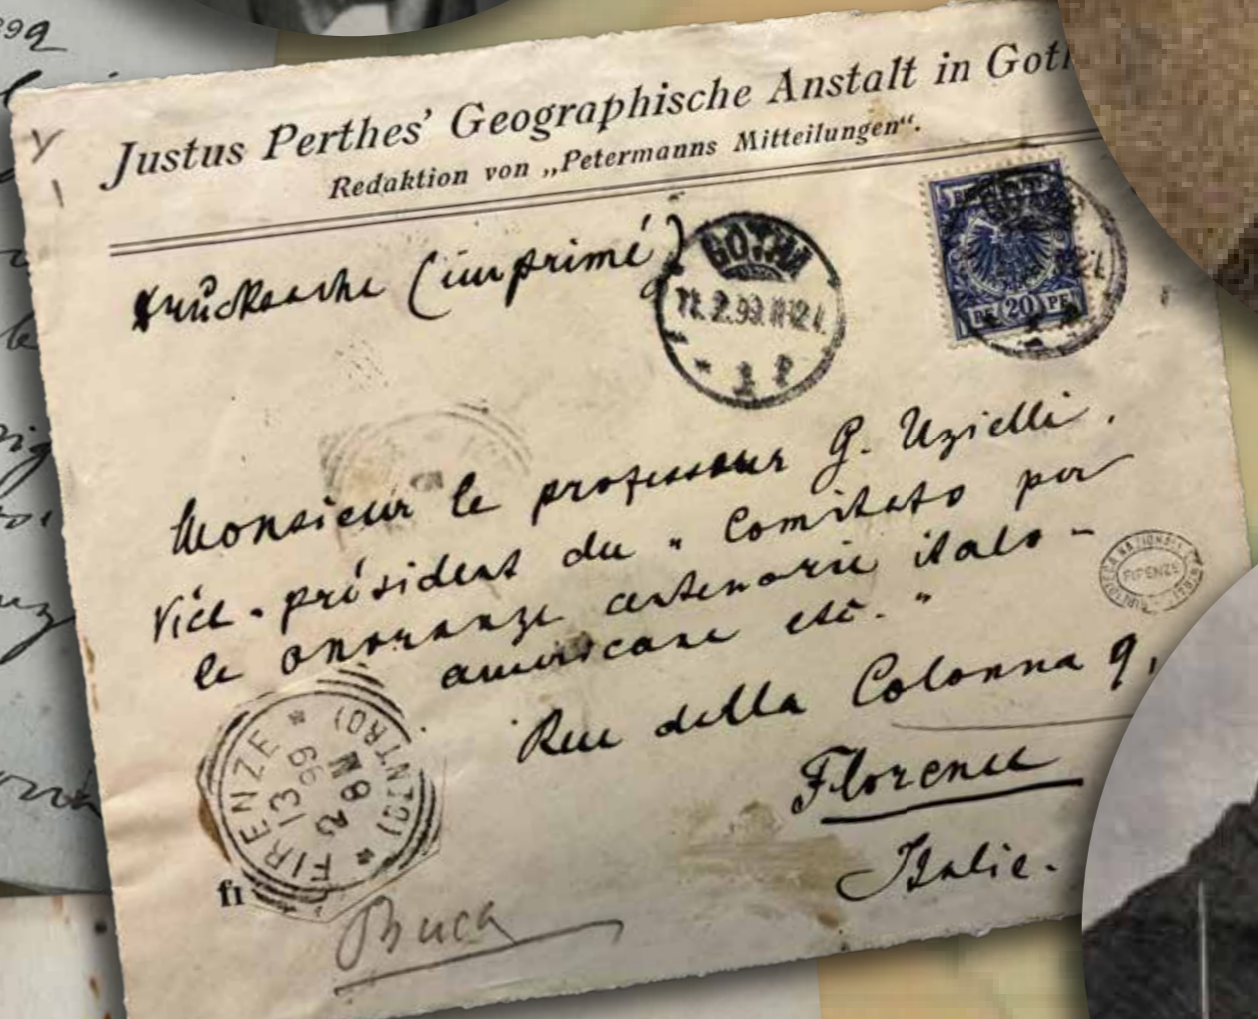 Justus Perthes' Geographische Anstalt in Goth
Redaktion von „Petermanns Mitteilungen“.
Drucksache (imprimé)
GOTHA
11.2.99.11-12 V.
20 PF
Monsieur le professeur G. Uzielli.
Vice-président du "Comitato per
le onoranze centenarie italo-
americane etc."
Rue della Colonna 9,
Florence
Italie.
FIRENZE
13 2 99
8 N
(CENTRO)
FIRENZE
fi
Buca